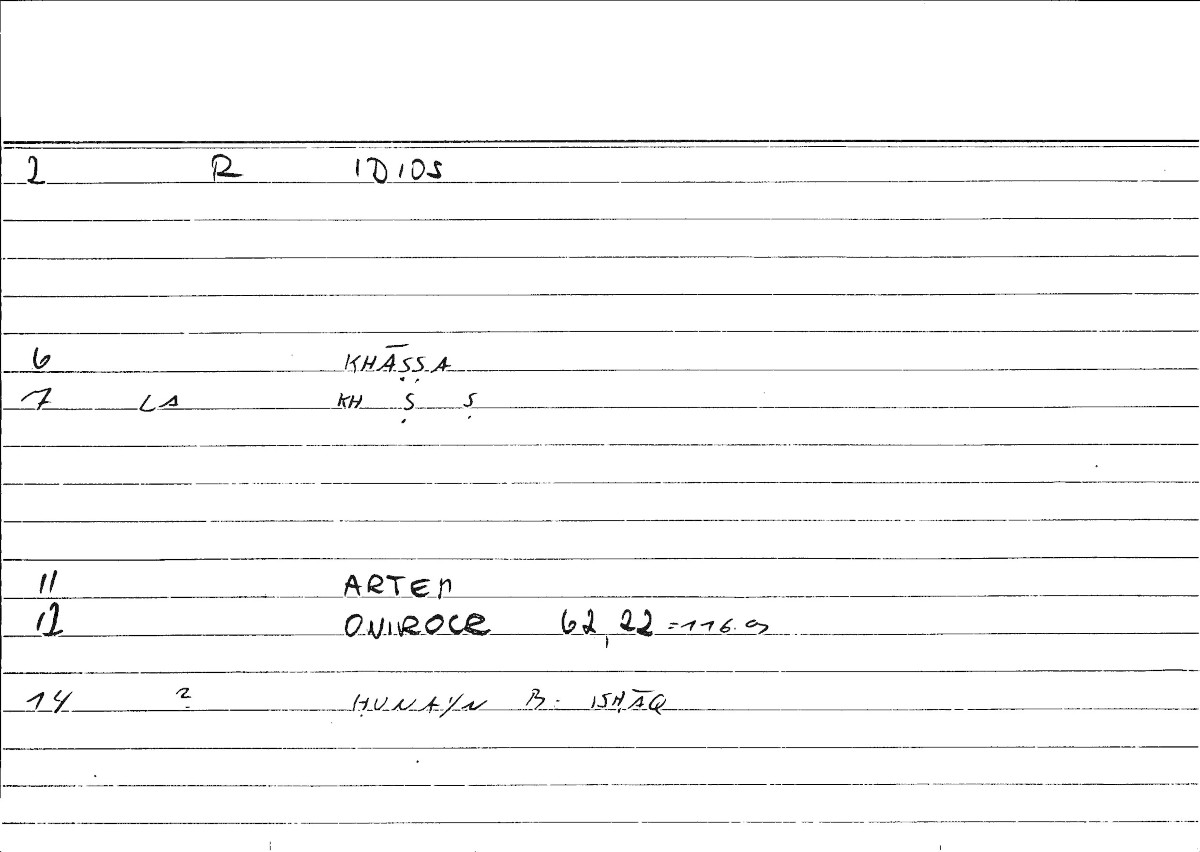 2 R IDIOS
6 KHĀṢṢA
7 LA KH Ṣ Ṣ
11 ARTEM
12 ONIROCR 62,22 =116.9
14 ? ḤUNAYN B. ISḤĀQ